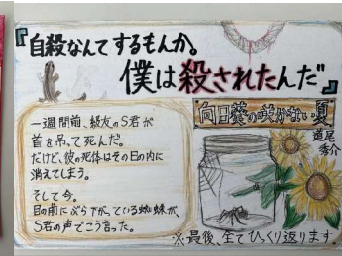 『自殺なんてするもんか。
僕は殺されたんだ』
一週間前、級友のS君が
首を吊って死んだ。
だけど、彼の死体はその日の内に
消えてしまう。
そして今。
目の前にぶら下がっている蜘蛛が、
S君の声でこう言った。
向日葵の咲かない夏
道尾
秀介
※最後、全てひっくり返ります。